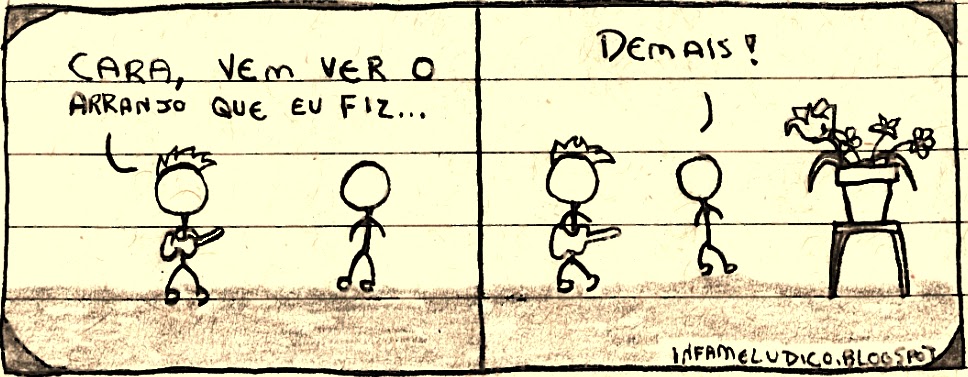 CARA, VEM VER O
ARRANJO QUE EU FIZ...
DEMAIS!
INFAMELUDICO.BLOGSPOT